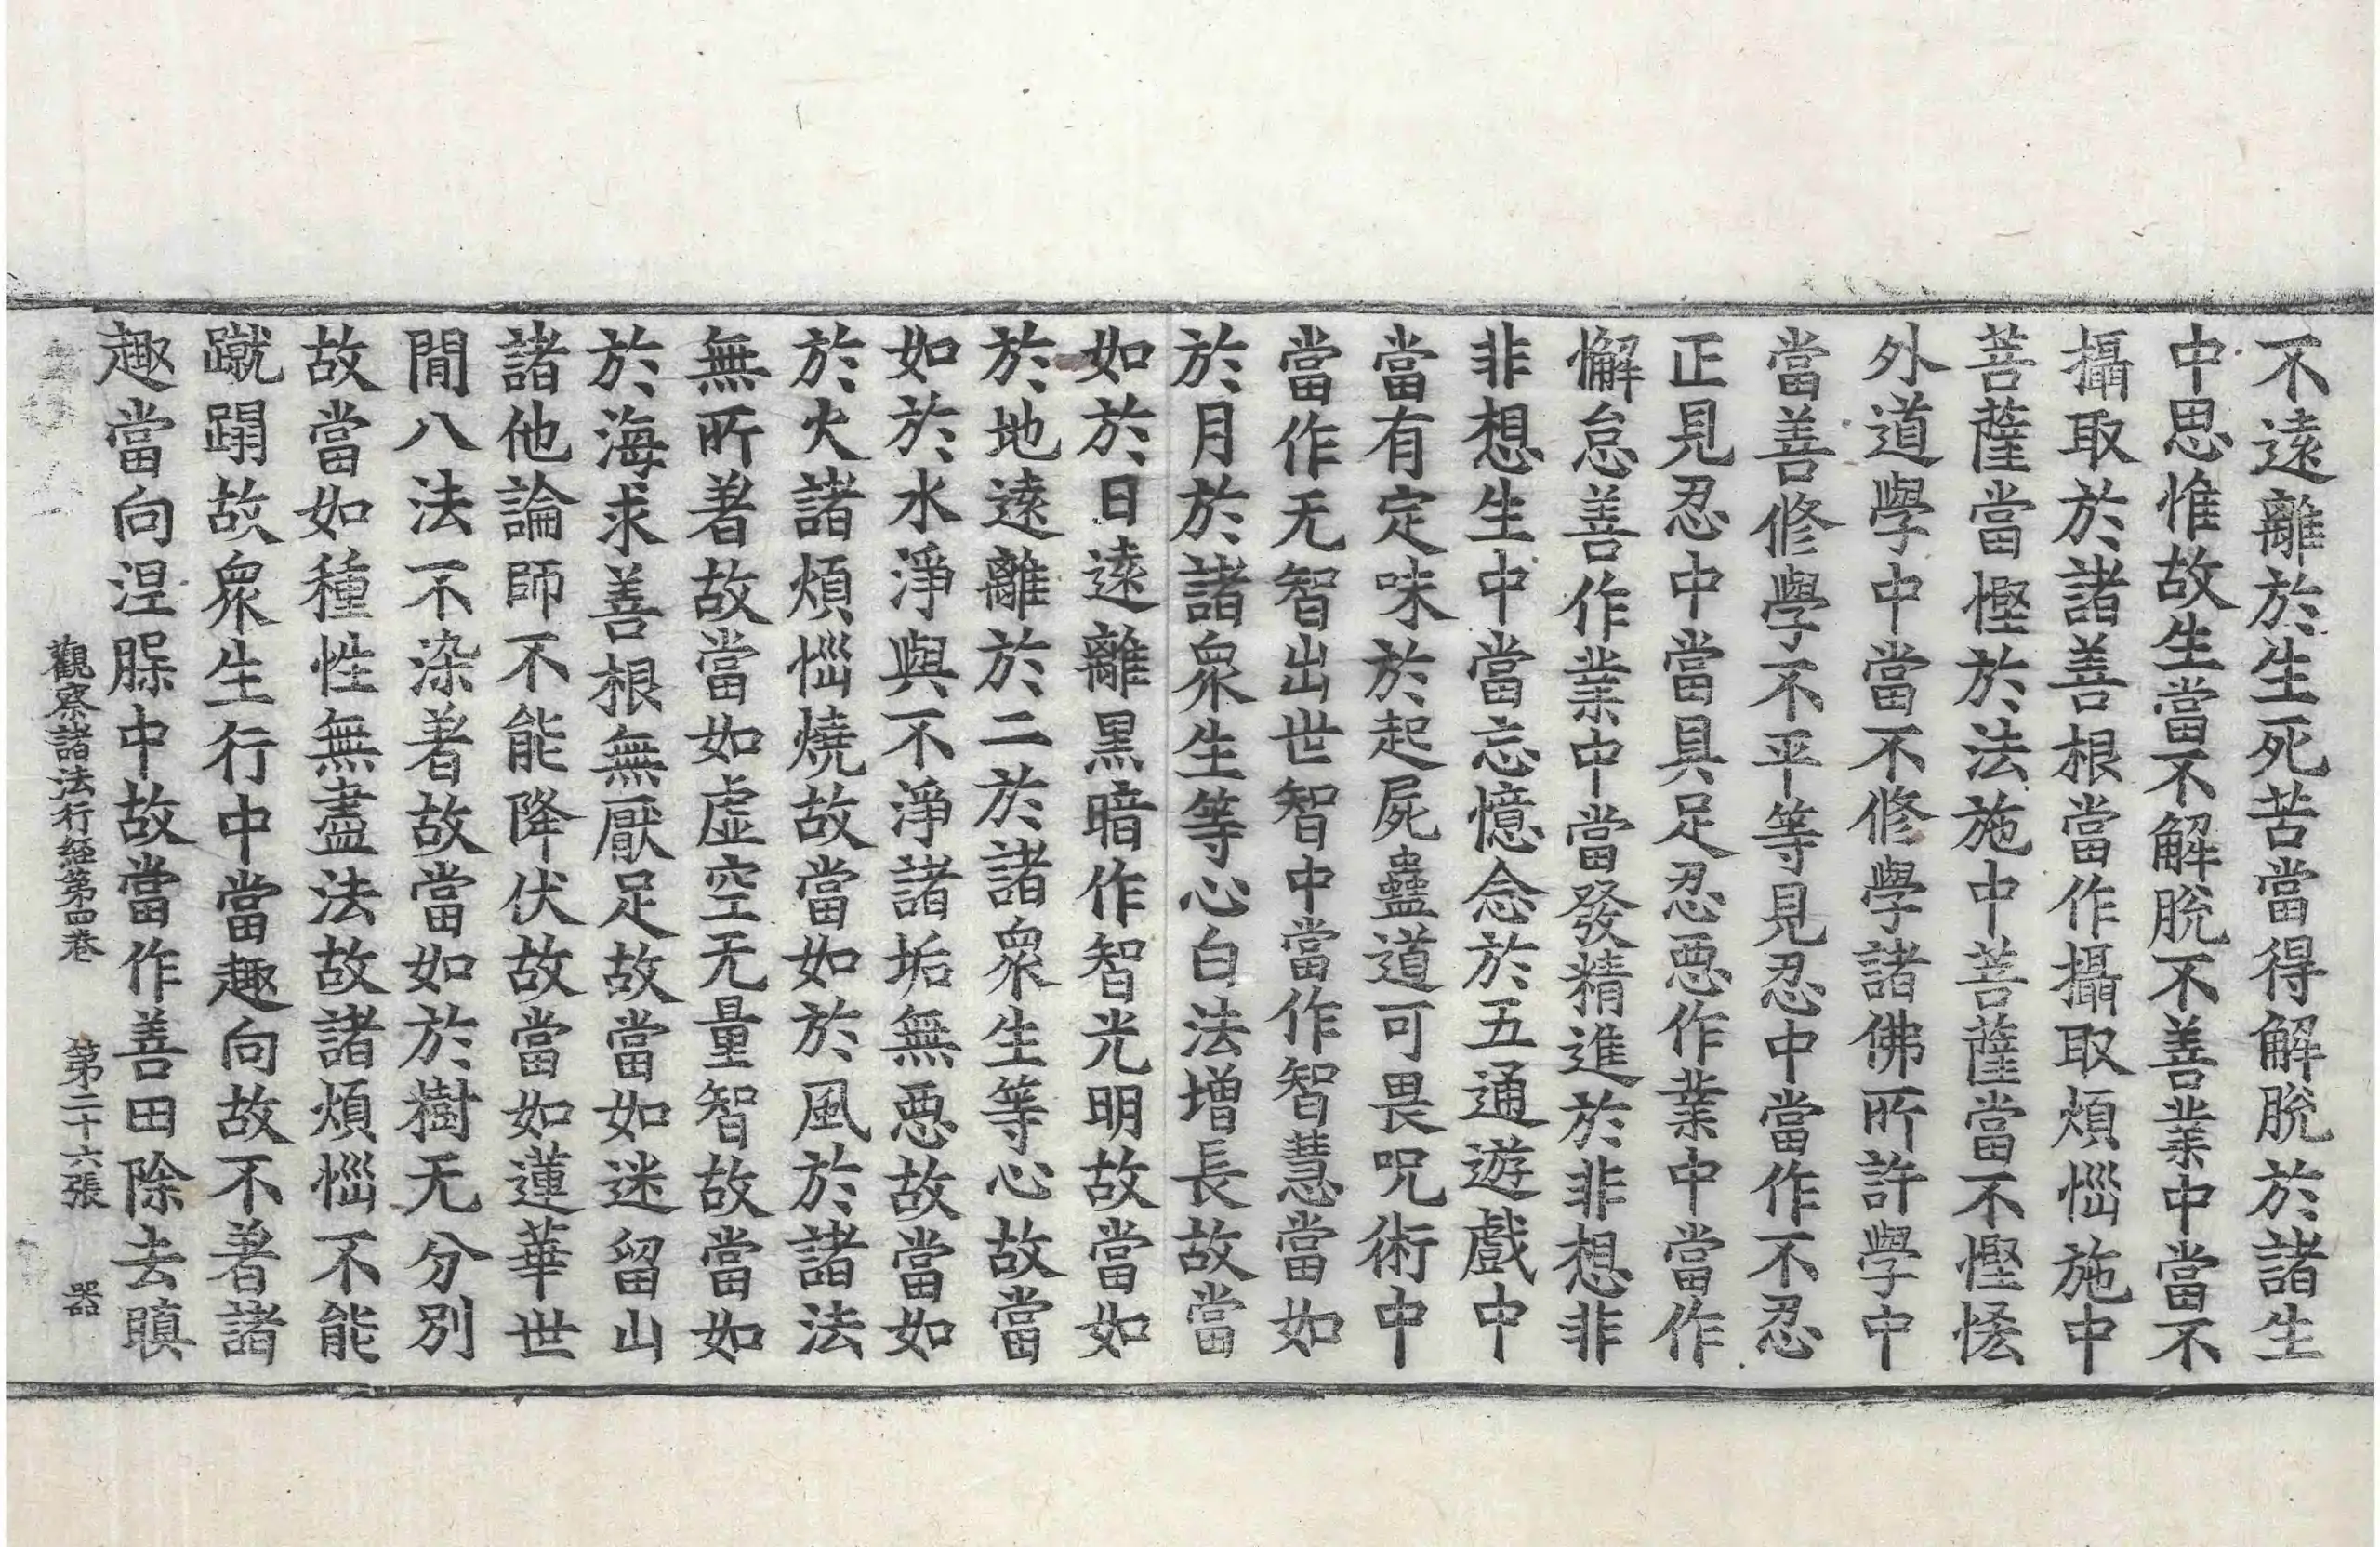 不遠離於生死苦當得解脫於諸生
中思惟故生當不解脫不善業中當不
攝取於諸善根當作攝取煩惱施中
菩薩當慳於法施中菩薩當不慳悋
外道學中當不修學諸佛所許學中
當善修學不平等見忍中當作不忍
正見忍中當具足忍惡作業中當作
懈怠善作業中當發精進於非想非
非想生中當忘憶念於五通遊戲中
當有定味於起屍蠱道可畏呪術中
當作无智出世智中當作智慧當如
於月於諸衆生等心白法增長故當
如於日遠離黑暗作智光明故當如
於地遠離於二於諸衆生等心故當
如於水淨與不淨諸垢無惡故當如
於火諸煩惱燒故當如於風於諸法
無所著故當如虛空无量智故當如
於海求善根無厭足故當如迷留山
諸他論師不能降伏故當如蓮華世
間八法不染著故當如於樹无分別
故當如種性無盡法故諸煩惱不能
蹴蹋故衆生行中當趣向故不著諸
趣當向涅槃中故當作善田除去瞋
觀察諸法行經第四卷 第二十六張 器